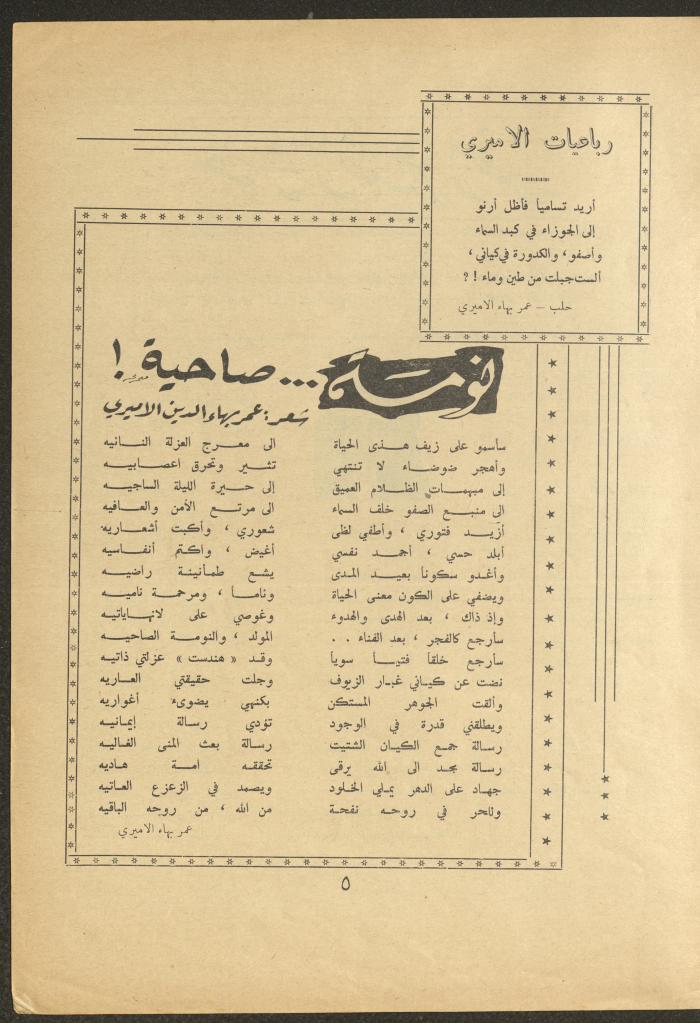 رباعيات الاميري
أريد تسامياً فأظل أرنو
إلى الجوزاء في كبد السماء
وأصفو، والكدورة في كياني،
ألست جبلت من طين وماء !؟
حلب – عمر بهاء الاميري
نومة ... صاحية !
شعر: عمر بهاء الدين الاميري
سأسمو على زيف هـذى الحياة الى معرج العزلة النائيه
وأهجر ضوضاء لا تنتهي تثير وتحرق اعصابيه
إلى مبهمات الظلام العميق إلى حيرة الليلة الساجيه
الى منبع الصفو خلف السماء الى مرتع الأمن والعافيه
أزيد فتوري ، وأطفي لظى شعوري ، وأكبت أشعاريه
أبلد حسي ، أجمد نفسي أغيض ، واكتم أنفاسيه
وأغدو سكوناً بعيد المدى يشع طمأنينة راضيه
ويضفي على الكون معنى الحياة ونامـا ، ومرحمة ناميه
وإذ ذاك ، بعد الهدى والهدوء وغوصي على لانهاياتيه
سأرجع كالفجر ، بعد الفناء . . المولد ، والنومة الصاحيه
سأرجع خلقاً فتيـاً سوياً وقد « هندست » عزلتي ذاتيه
نضت عن كياني غبار الزيوف وجلت حقيقتي العاريه
وألقت الجوهر المستكن بكنهي يضوىء أغواريه
ويطلقني قدرة في الوجود تؤدي رسالة إيمانيه
رسالة جمع الكيان الشتيت رسالة بعث المنى الغاليه
رسالة مجد الى الله يرقى تحققه امة هاديه
جهاد على الدهر يملي الخلود ويصمد في الزعزع العاتيه
وللحر في روحه نفحة من الله ، من روحه الباقيه
عمر بهاء الاميري
٥